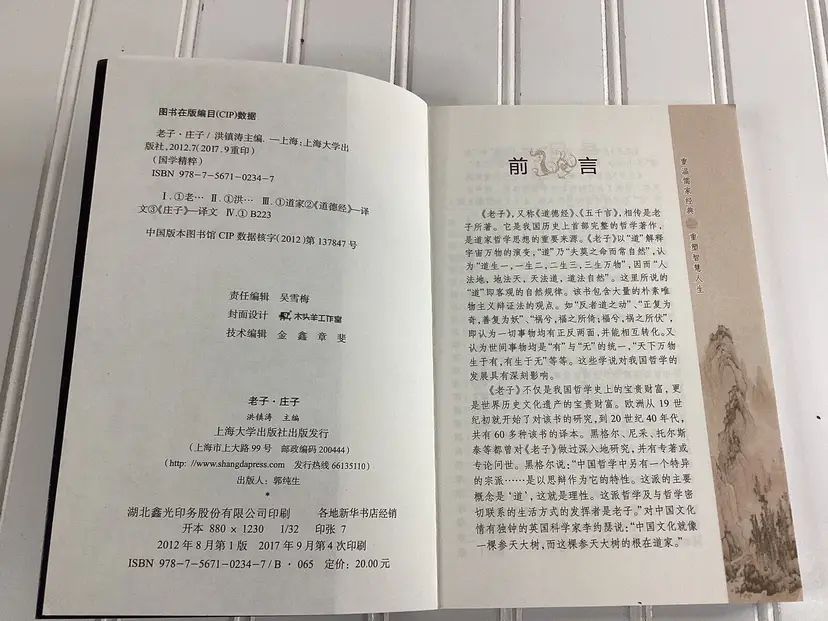 图书在版编目(CIP)数据
老子·庄子/洪镇涛主编.—上海:上海大学出
版社,2012.7(2017.9重印)
(国学精粹)
ISBN 978-7-5671-0234-7
Ⅰ.①老… Ⅱ.①洪… Ⅲ.①道家②《道德经》—译
文③《庄子》—译文 Ⅳ.①B223
中国版本图书馆CIP数据核字(2012)第137847号
责任编辑 吴雪梅
封面设计 木头羊工作室
技术编辑 金鑫 章斐
老子·庄子
洪镇涛 主编
上海大学出版社出版发行
(上海市上大路99号 邮政编码200444)
(http://www.shangdapress.com 发行热线66135110)
出版人:郭纯生
*
湖北鑫光印务股份有限公司印刷 各地新华书店经销
开本 880×1230 1/32 印张 7
2012年8月第1版 2017年9月第4次印刷
ISBN 978-7-5671-0234-7/B·065 定价:20.00元
前言
《老子》,又称《道德经》、《五千言》,相传是老
子所著。它是我国历史上首部完整的哲学著作,
是道家哲学思想的重要来源。《老子》以“道”解释
宇宙万物的演变,“道”乃“夫莫之命而常自然”,认
为“道生一,一生二,二生三,三生万物”,因而“人
法地,地法天,天法道,道法自然”。这里所说的
“道”即客观的自然规律。该书包含大量的朴素唯
物主义辩证法的观点。如“反者道之动”、“正复为
奇,善复为妖”、“祸兮,福之所倚;福兮,祸之所伏”,
即认为一切事物均有正反两面,并能相互转化。又
认为世间事物均是“有”与“无”的统一,“天下万物
生于有,有生于无”等等。这些学说对我国哲学的
发展具有深刻影响。
《老子》不仅是我国哲学史上的宝贵财富,更
是世界历史文化遗产的宝贵财富。欧洲从19世
纪初就开始了对该书的研究,到20世纪40年代,
共有60多种该书的译本。黑格尔、尼采、托尔斯
泰等都曾对《老子》做过深入地研究,并有专著或
专论问世。黑格尔说:“中国哲学中另有一个特异
的宗派……是以思辩作为它的特性。这派的主要
概念是‘道’,这就是理性。这派哲学及与哲学密
切联系的生活方式的发挥者是老子。”对中国文化
情有独钟的英国科学家李约瑟说:“中国文化就像
一棵参天大树,而这棵参天大树的根在道家。”
重温儒家经典 重塑智慧人生